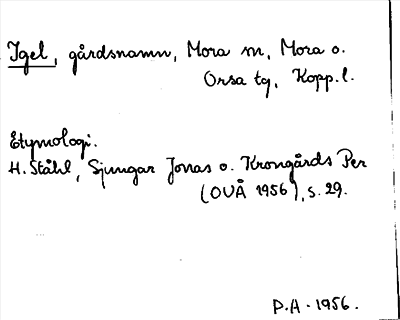 Igel, gårdsnamn, Mora sn, Mora o.
Orsa tg, Kopp. l.
Etymologi.
H. Ståhl, Sjungar Jonas o. Krongårds Per
(OUÅ 1956), s. 29.
P.A. 1956.